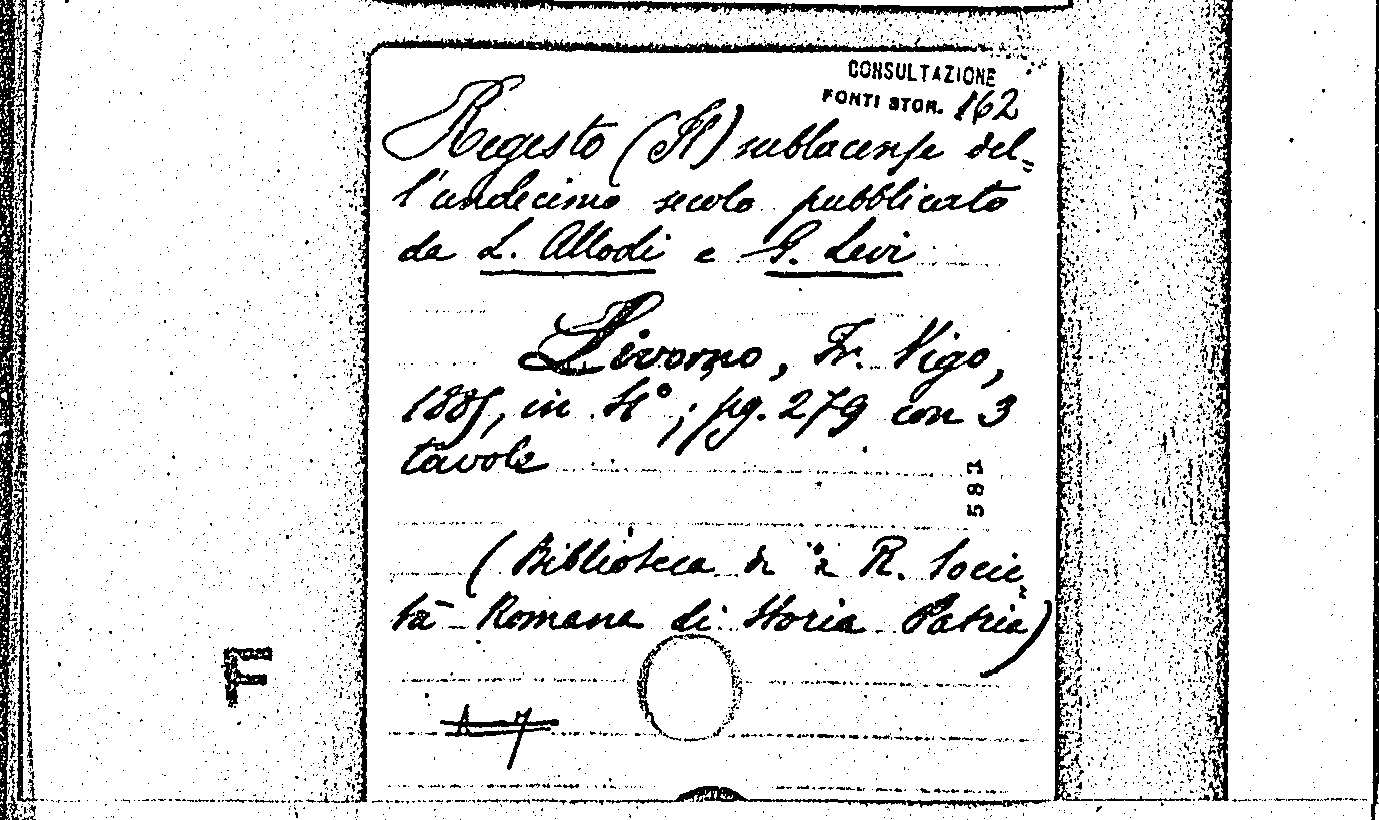 CONSULTAZIONE
FONTI STOR. 162
Regesto (Il) sublacense del=
l'undecimo secolo pubblicato
da L. Allodi e G. Levi
Livorno, Fr. Vigo,
1885, in 4°; pg. 279 con 3
tavole
581
(Biblioteca R. Socie=
tà Romana di Storia Patria)
F